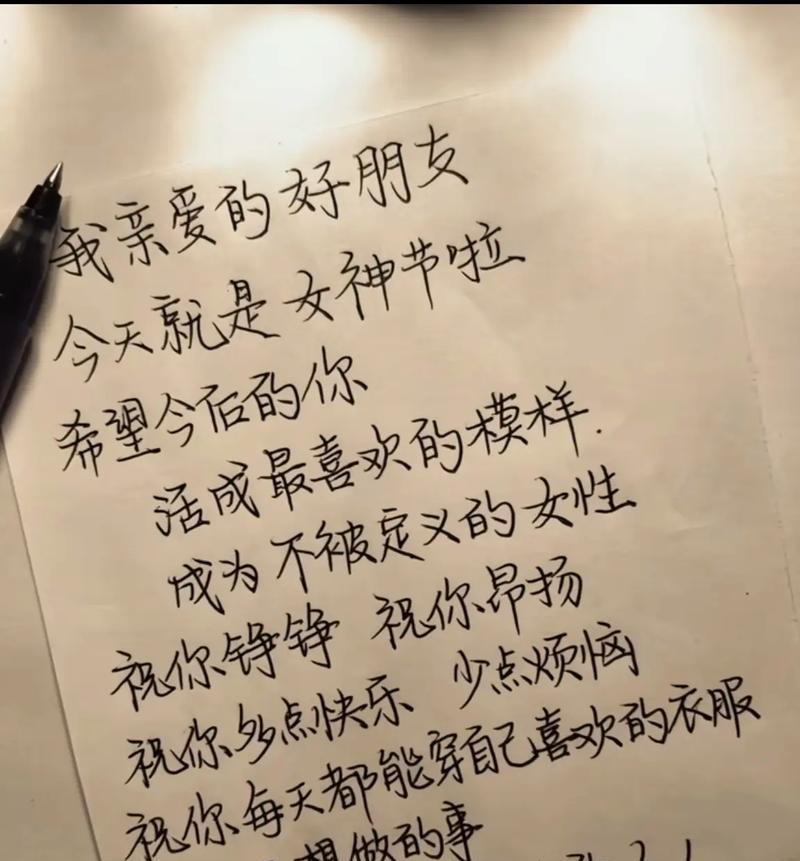 我亲爱的好朋友
今天就是女神节啦
希望今后的你
活成最喜欢的模样.
成为不被定义的女性
祝你铮铮 祝你昂扬
祝你多点快乐 少点烦恼
祝你每天都能穿自己喜欢的衣服
想做的事